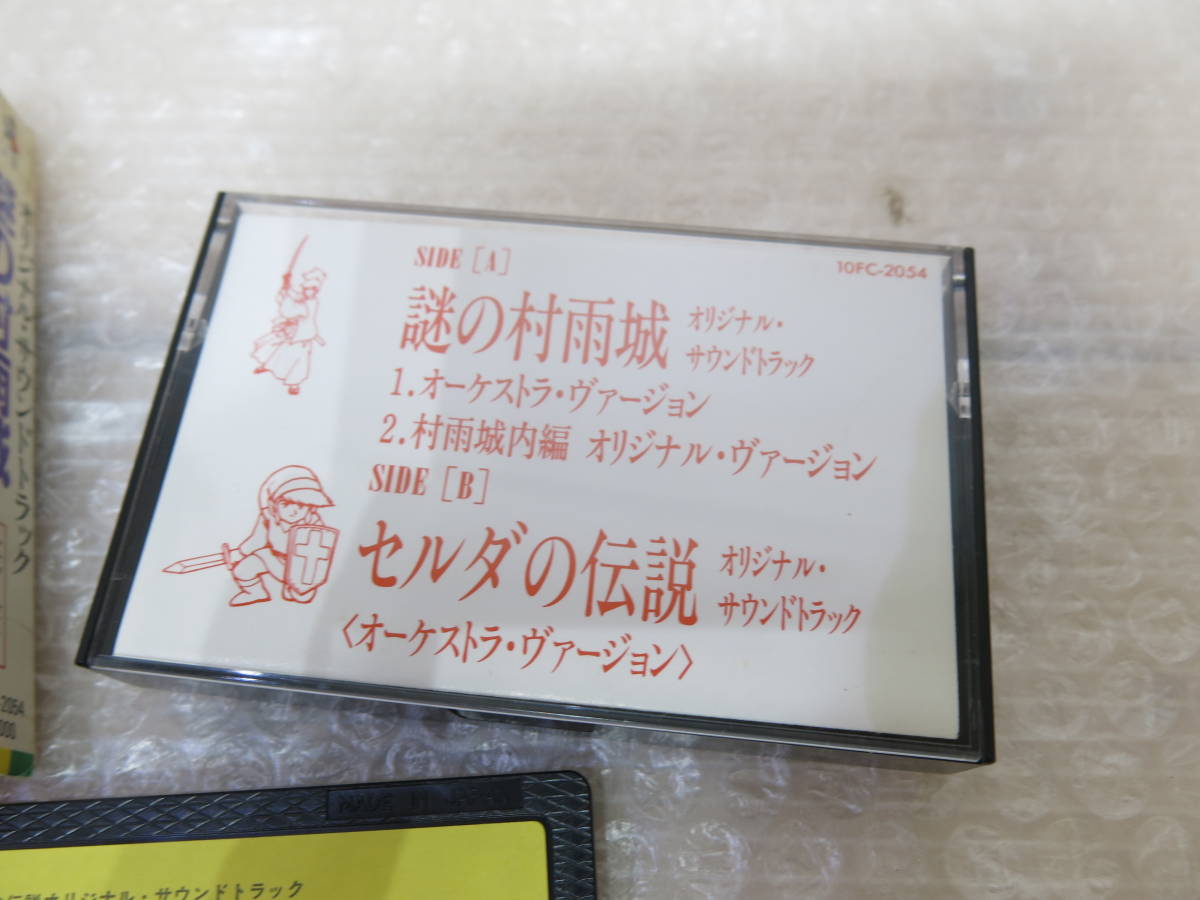 SIDE [A]
10FC-2054
謎の村雨城 オリジナル・
サウンドトラック
1.オーケストラ・ヴァージョン
2.村雨城内編 オリジナル・ヴァージョン
SIDE [B]
セルダの伝説 オリジナル・
サウンドトラック
〈オーケストラ・ヴァージョン〉
2054
000
MADE IN JAPAN
伝説オリジナル・サウンドトラック